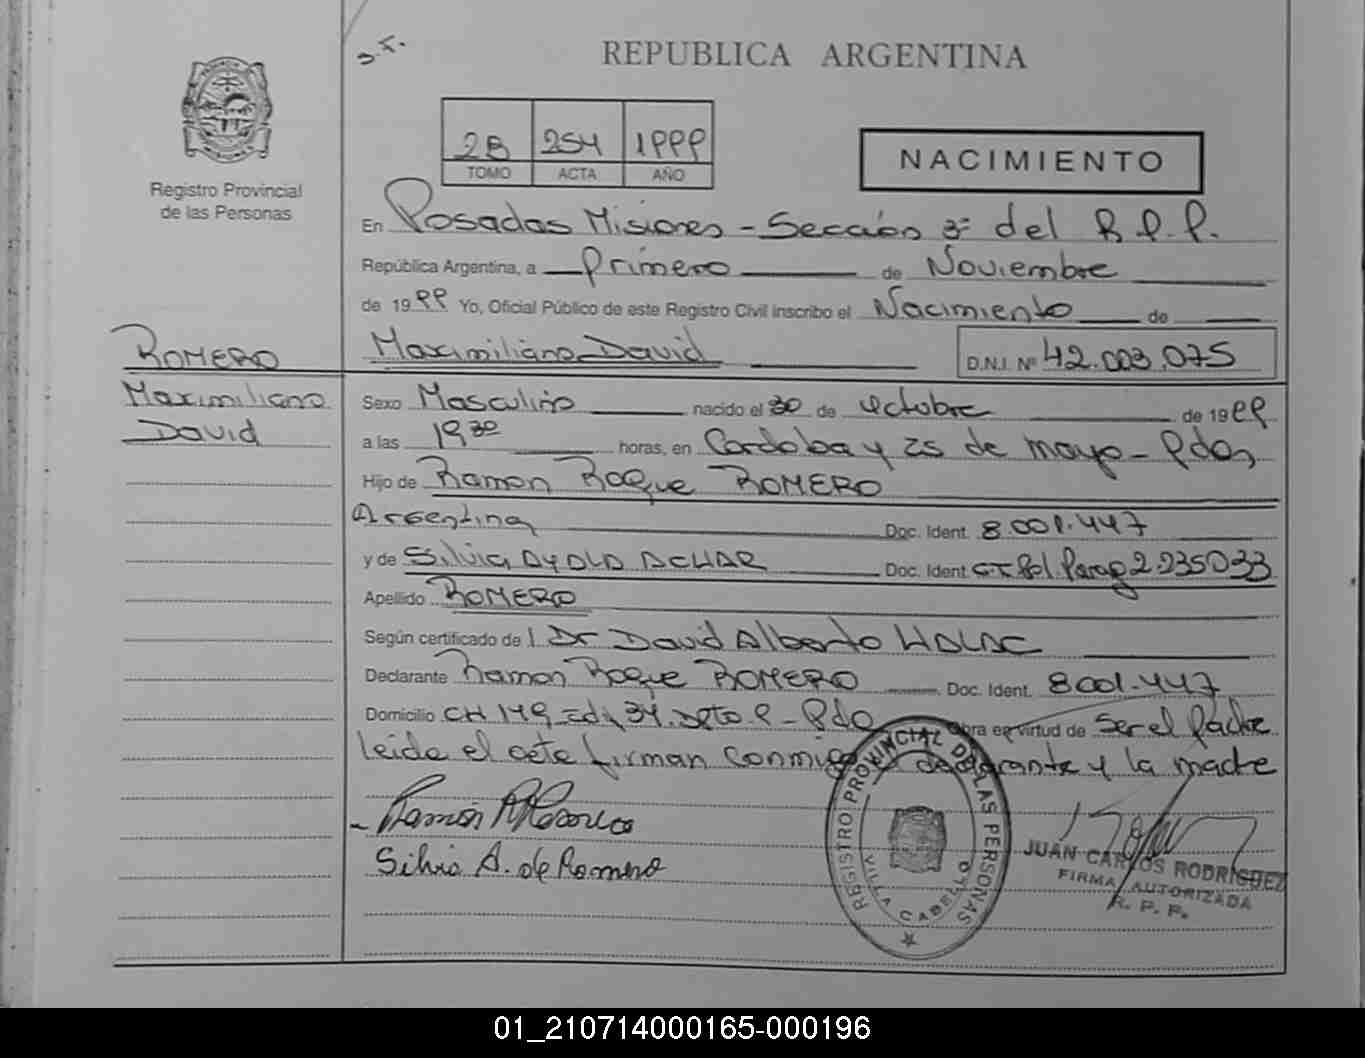 REPUBLICA ARGENTINA
Registro Provincial
de las Personas
2B 254 1999
TOMO ACTA AÑO
NACIMIENTO
En Posadas Misiones - Sección 3ª del R.P.P.
República Argentina, a Primero de Noviembre
de 1999 Yo, Oficial Público de este Registro Civil inscribo el Nacimiento de
Maximiliano David D.N.I. Nº 42.003.075
ROMERO
Maximiliano
David
Sexo Masculino nacido el 30 de octubre de 1999
a las 19 30 horas, en Cordoba y 25 de mayo - Pdas
Hijo de Ramon Roque ROMERO
Argentina Doc. Ident. 8.001.447
y de Silvia AYALA ACHAR Doc. Ident. Pol. Parag 2.235033
Apellido ROMERO
Según certificado de l Dr David Alberto HALAC
Declarante Ramon Roque ROMERO Doc. Ident. 8001.447
Domicilio CH 149 Ed. 34. Dpto. 9 - Pda Obra en virtud de Ser el Padre
leida el acta firman conmigo declarante y la madre
Silvia A. de Romero
REGISTRO PROVINCIAL DE LAS PERSONAS
VILLA CABELLO
JUAN CARLOS RODRIGUEZ
FIRMA AUTORIZADA
R. P. P.
01_210714000165-000196